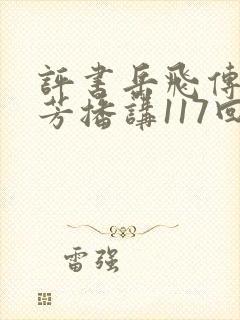 評書岳飛傳
芳播講117回
雷强